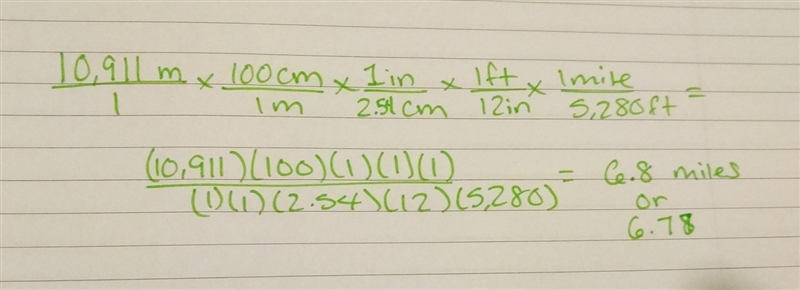 10,911 m / 1 × 100cm / 1m × 1in / 2.54cm × 1ft / 12in × 1mile / 5,280ft =
(10,911)(100)(1)(1)(1) / (1)(1)(2.54)(12)(5,280) = 6.8 miles
or
6.78